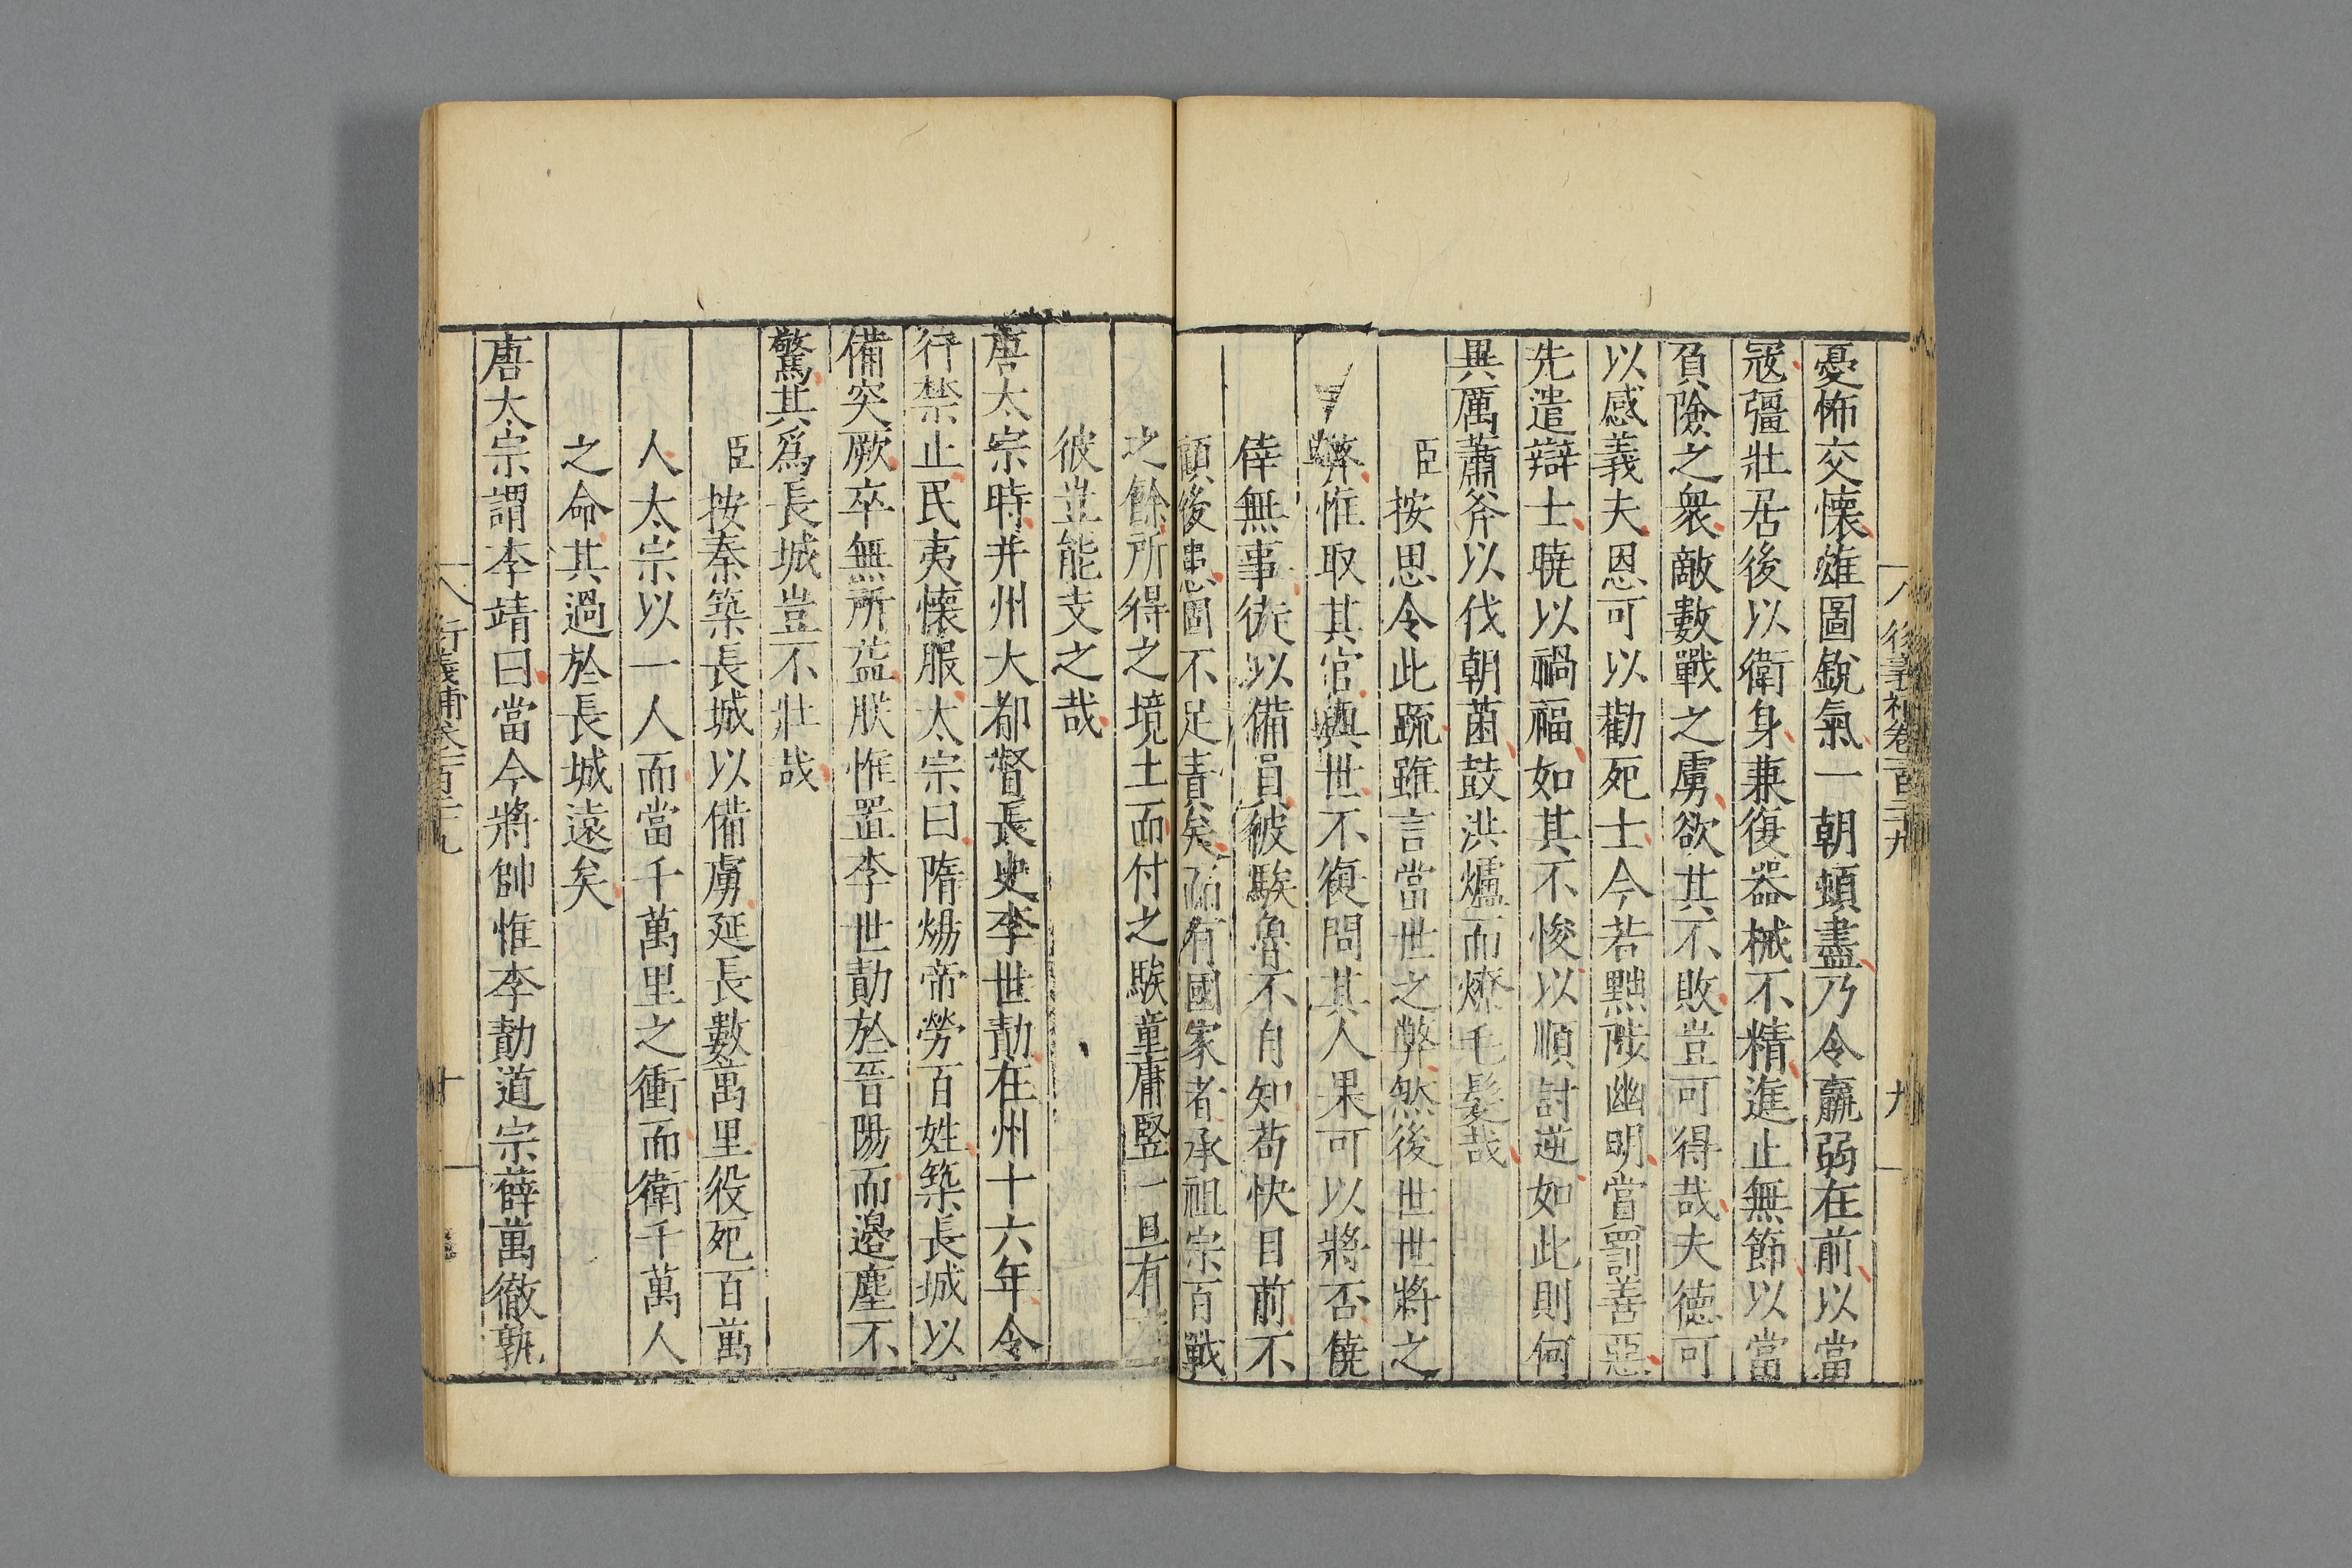 憂怖交懷雄圖銳氣一朝頓盡乃令羸弱在前以當
冦彊壯居後以衛身兼復器械不精進止無節以當
負險之衆敵數戰之虜欲其不敗豈可得哉夫德可
以感義夫恩可以勸死士今若黜陟幽明賞罰善惡
先遣辯士曉以禍福如其不悛以順討逆如此則何
異厲蕭斧以伐朝菌鼓洪爐而燎毛髮哉
臣按思令此疏雖言當世之弊然後世世將之
弊惟取其官與世不復問其人果可以將否僥
倖無事徒以備員彼騃魯不自知苟快目前不
顧後患固不足責矣而有國家者承祖宗百戰
之餘所得之境土而付之騃童庸竪一旦有
彼豈能支之哉
唐太宗時并州大都督長史李世勣在州十六年令
行禁止民夷懷服太宗曰隋煬帝勞百姓築長城以
備突厥卒無所益朕惟置李世勣於晉陽而邊塵不
驚其爲長城豈不壯哉
臣按秦築長城以備虜延長數萬里役死百萬
人太宗以一人而當千萬里之衝而衛千萬人
之命其過於長城遠矣
唐太宗謂李靖曰當今將帥惟李勣道宗薛萬徹孰
衍義補卷一百二十九
十